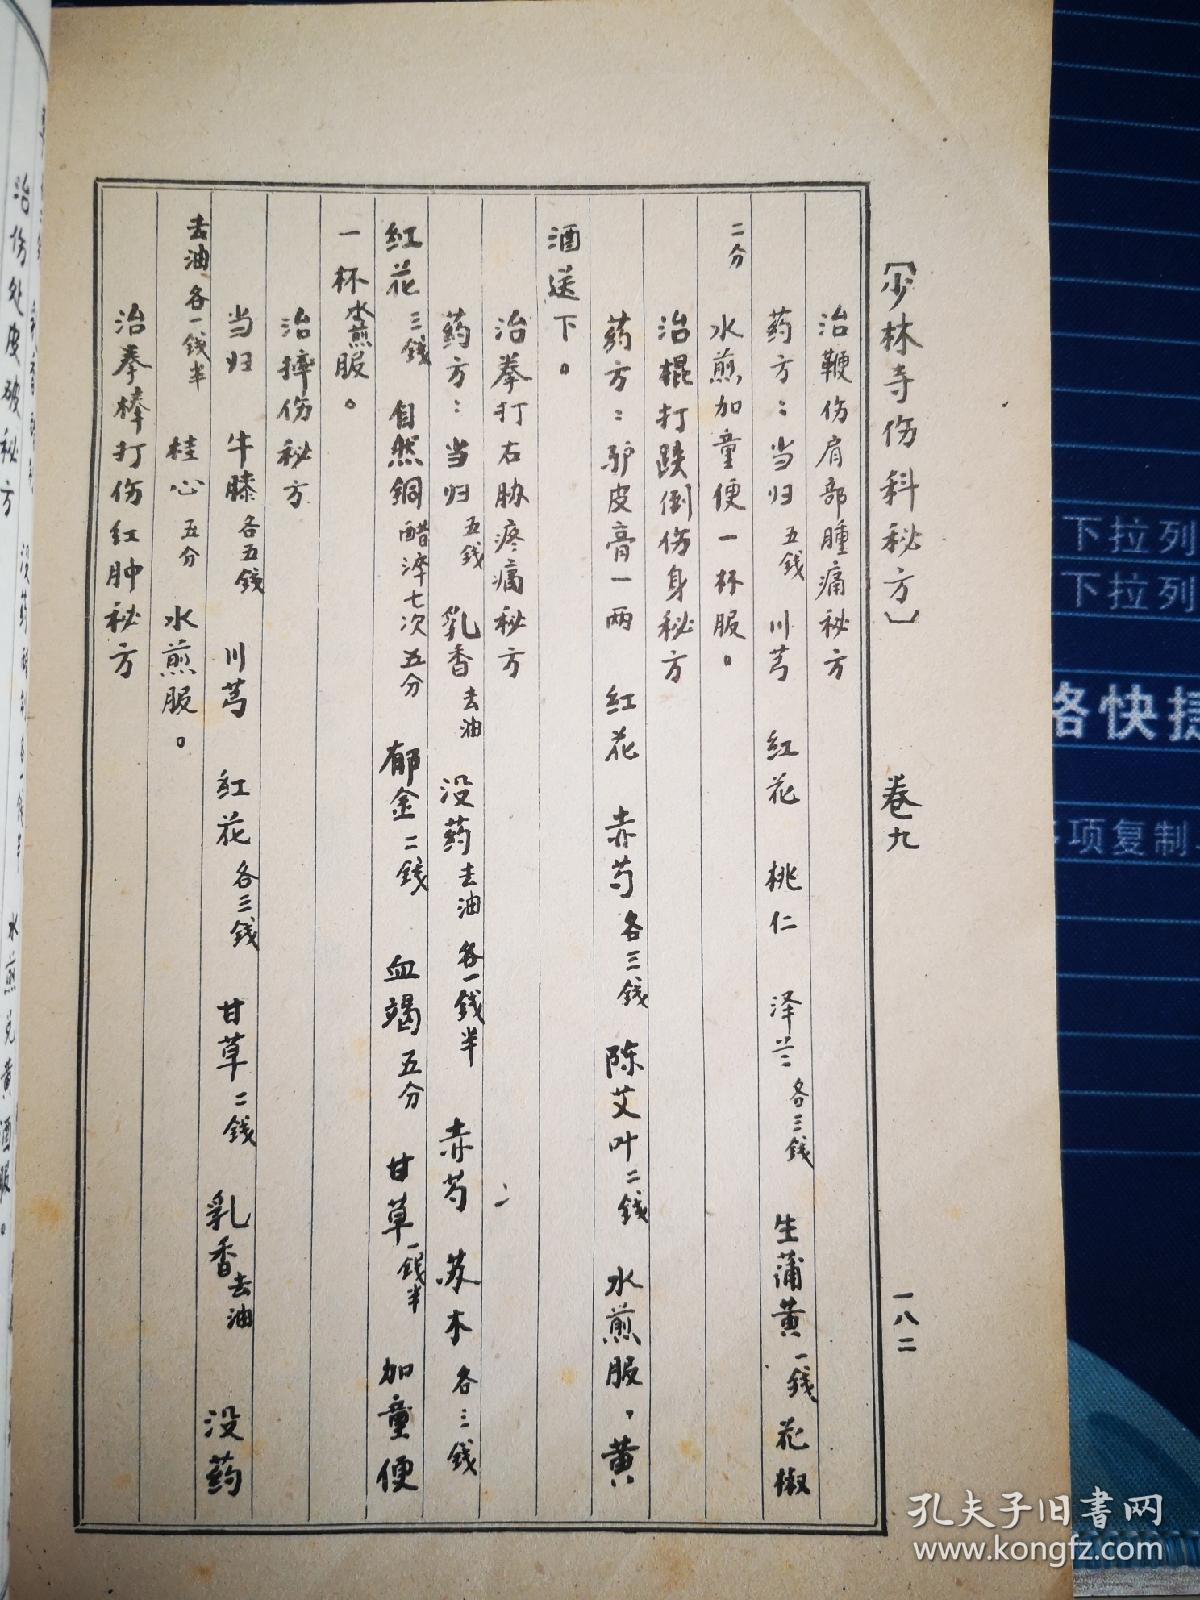 〔少林寺伤科秘方〕 卷九 一八二
治鞭伤肩部腫痛秘方
药方：当归五钱 川芎 红花 桃仁 泽兰各三钱 生蒲黄一钱 花椒
二分 水煎加童便一杯服。
治棍打跌倒伤身秘方
药方：驴皮膏一两 红花 赤芍各三钱 陈艾叶二钱 水煎服，黄
酒送下。
治拳打右胁疼痛秘方
药方：当归五钱 乳香去油 没药去油各一钱半 赤芍 苏木各三钱
红花三钱 自然銅醋淬七次五分 郁金二钱 血竭五分 甘草一钱半 加童便
一杯水煎服。
治摔伤秘方
当归 牛膝各五钱 川芎 红花各三钱 甘草二钱 乳香去油 没药
去油各一钱半 桂心五分 水煎服。
治拳棒打伤红肿秘方
水煎兑黄酒服。
治伤处皮破秘方
下拉列
下拉列
络快捷
项复制
孔夫子旧书网
www.kongfz.com